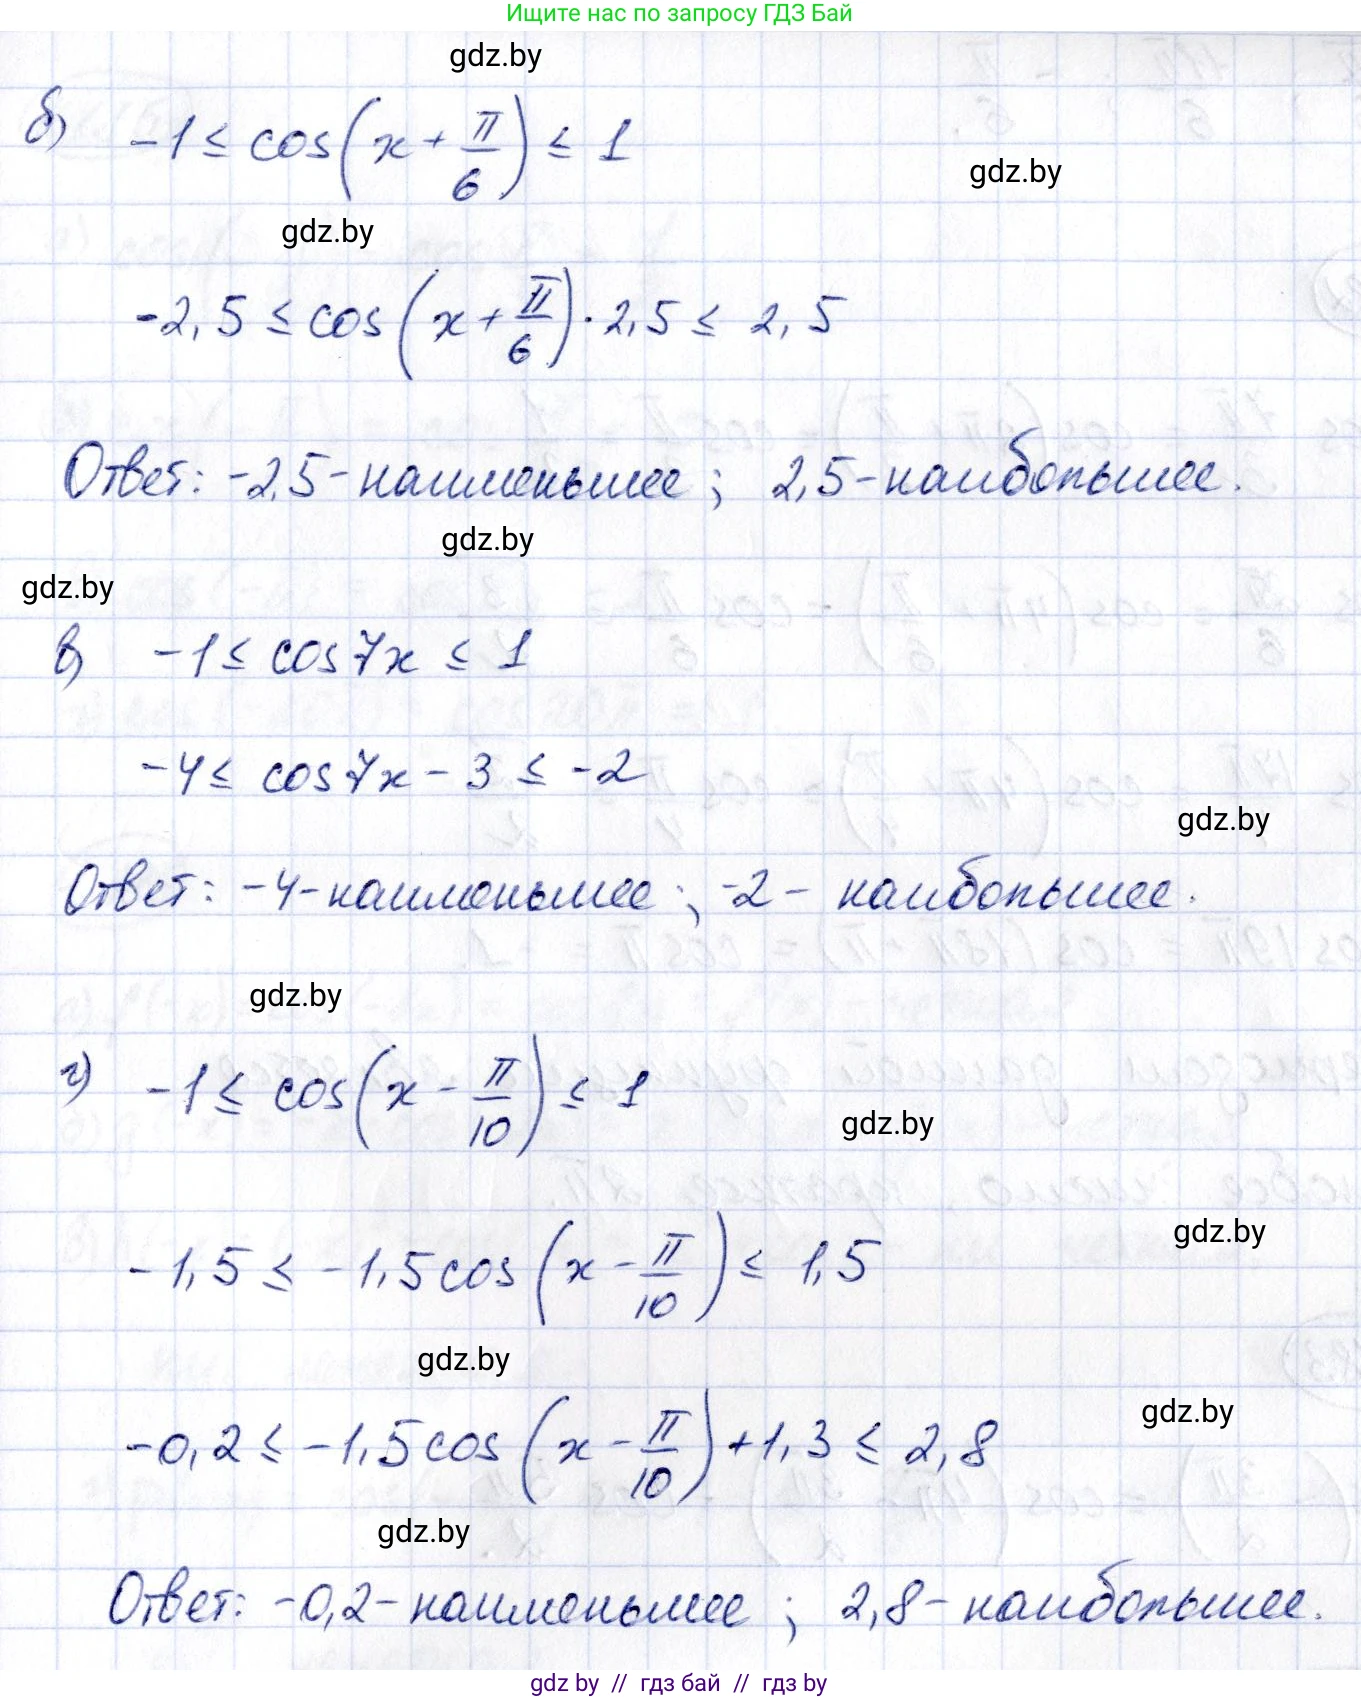 Ищите нас по запросу ГДЗ Бай
gdz.by
б) -1 ≤ cos(x + π/6) ≤ 1
gdz.by
gdz.by
-2,5 ≤ cos(x + π/6) · 2,5 ≤ 2,5
Ответ: -2,5 - наименьшее ; 2,5 - наибольшее.
gdz.by
gdz.by
в) -1 ≤ cos7x ≤ 1
-4 ≤ cos7x - 3 ≤ -2
gdz.by
Ответ: -4 - наименьшее ; -2 - наибольшее.
gdz.by
г) -1 ≤ cos(x - π/10) ≤ 1
gdz.by
gdz.by
-1,5 ≤ -1,5cos(x - π/10) ≤ 1,5
gdz.by
gdz.by
-0,2 ≤ -1,5cos(x - π/10) + 1,3 ≤ 2,8
gdz.by
Ответ: -0,2 - наименьшее ; 2,8 - наибольшее.
gdz by // гдз бай // gdz by